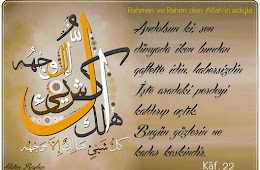 Rahman ve Rahim olan Allah'ın adıyla
Andolsun ki, sen
dünyada iken bundan
gaflette idin, habersizdin
İşte aradaki perdeyi
kaldırıp açtık.
Bugün gözlerin ne
kadar keskindir.
Kâf, 22
كل شيء هالك إلا وجهه
كل شيء هالك إلا وجهه